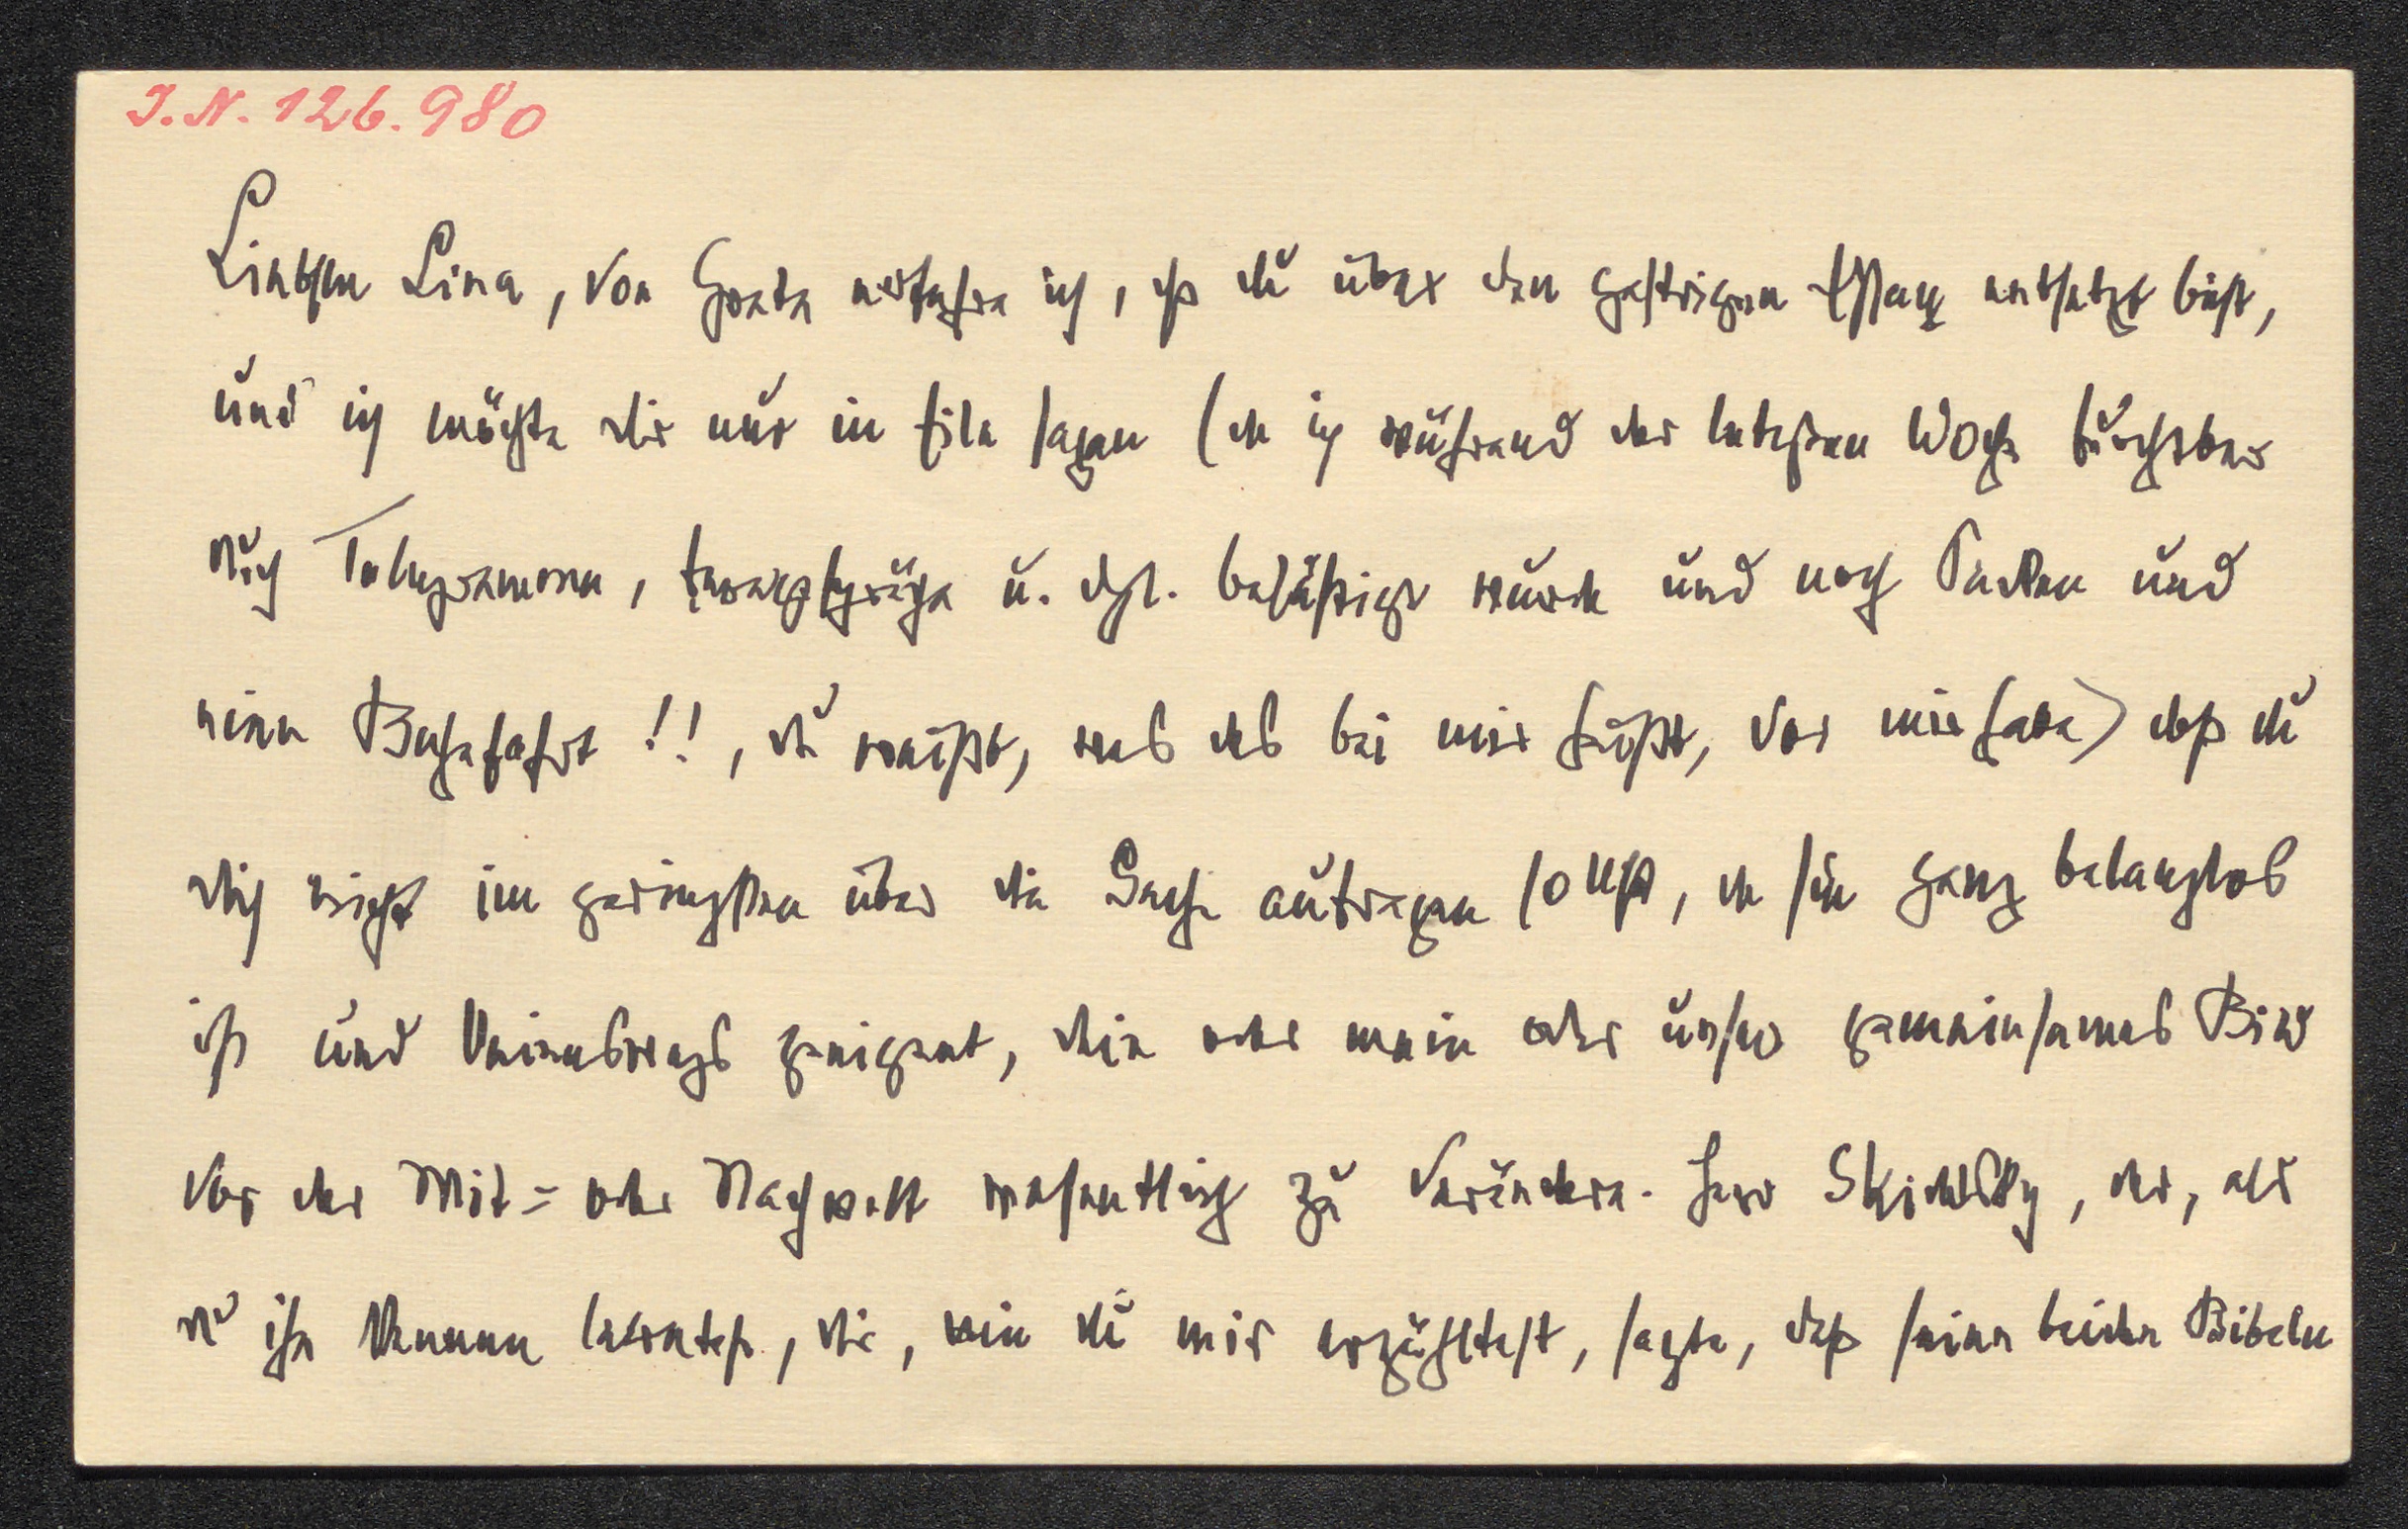 I.N. 126.980
Liebste Lina, von Grete erfahre ich, dß du über den gestrigen Essay entsetzt bist,
und ich möchte dir nur in Eile sagen (da ich während der letzten Woche furchtbar
durch Telegramme, Ferngespräche u. dgl. belästigt wurde und noch Packen und
eine Bahnfahrt!!, du weißt, was das bei mir heißt, vor mir habe) daß du
dich nicht im geringsten über die Sache aufregen sollst, da sie ganz belanglos
ist und keineswegs geeignet, dein oder mein oder unser gemeinsames Bild
vor der Mit= oder Nachwelt wesentlich zu verändern. Herr Skidelsky, der, als
du ihn kennen lerntest, dir, wie du mir erzähltest, sagte, daß seine beiden Bibeln